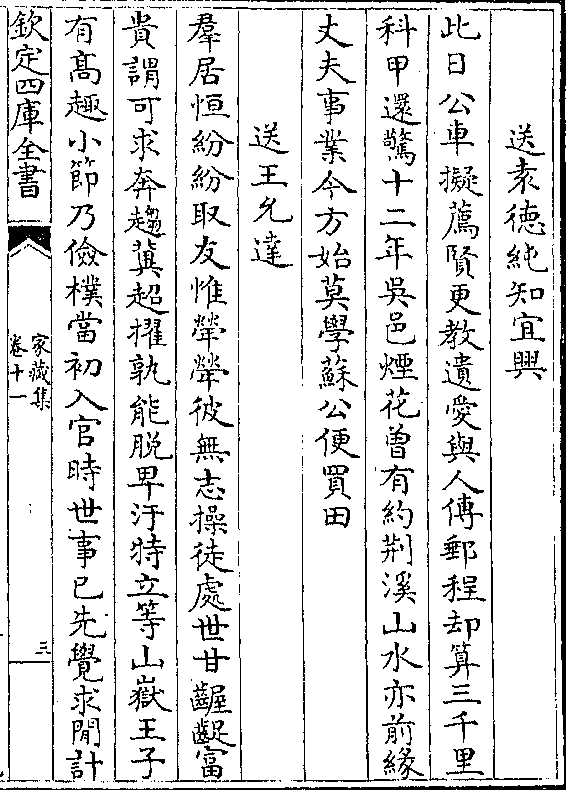 送袁德純知宜興
此日公車擬薦賢更教遺愛與人傳郵程却算三千里
科甲還驚十二年吳邑煙花曾有約荆溪山水亦前緣
丈夫事業今方始莫學蘇公便買田
送王允達
羣居恒紛紛取友惟犖犖彼無志操徒處世甘齷齪富
貴謂可求奔趨冀超擢孰能脱卑汙特立等山嶽王子
有髙趣小節乃儉樸當初入官時世事已先覺求閒計
欽定四庫全書
家藏集
卷十一
三